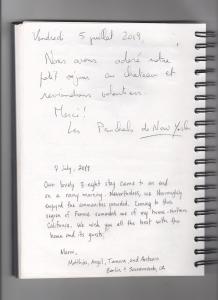 Vendredi 5 juillet 2019,
Nous avons adoré notre
petit séjour au chateau et
reviendrons volontiers.
Merci!
Les de New York
8 July, 2019
Our lovely 3-night stay came to an end
on a rainy morning. Nevertheless, we thoroughly
enjoyed the amenities provided. Coming to this
region of France reminded me of my home - northern
California. We wish you all the best with the
house and its guests!
Warm,
Matthias, Angel, Tamara and
Berlin + Sacramento, CA